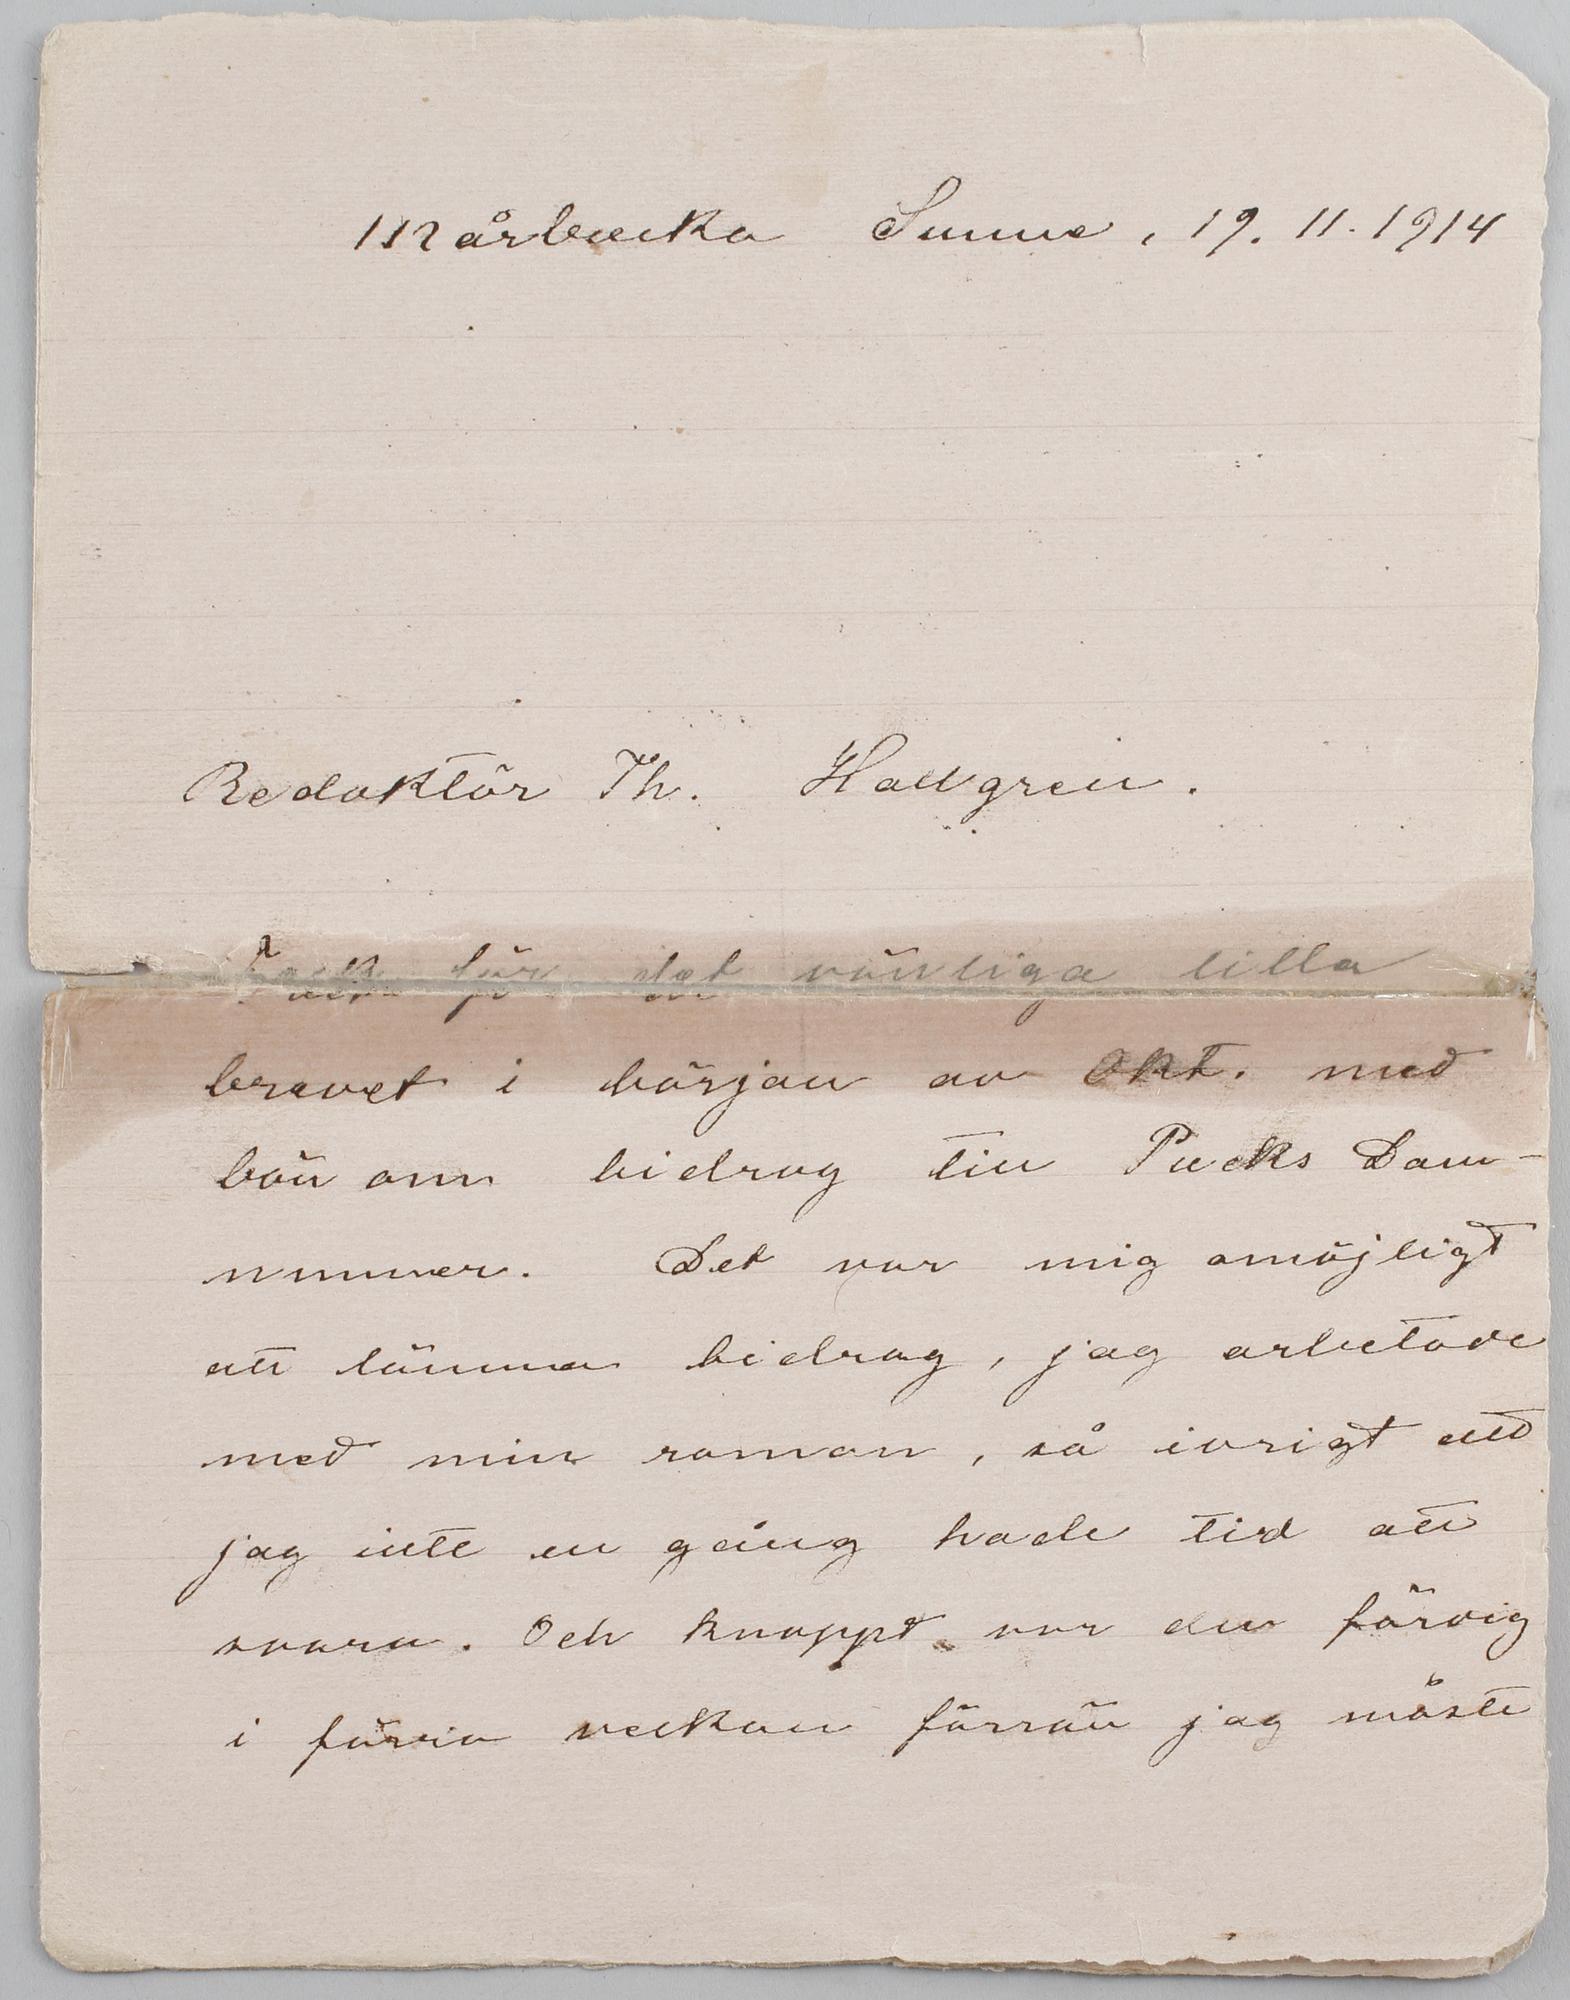 Mårbacka Sunne, 19. 11. 1914
Redaktör Th. Hallgren.
Tack för det vänliga lilla
brevet i början av Okt. med
bön om bidrag till Pucks Dam-
nummer. Det var mig omöjligt
att lämna bidrag, jag arbetade
med min roman, så ivrigt att
jag inte en gång hade tid att
svara. Och knappt var den färdig
i förra veckan förrän jag måste